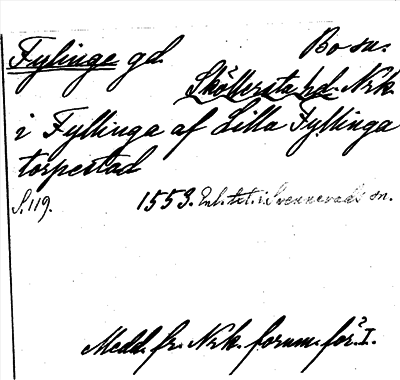 Fylinge gd. Bo sn.
Sköllersta hd. Nrk.
i Fyllinga af Lilla Fyllinga
torpestad
S. 119. 1553. Enl. tet. i Svennevads sn.
Medd. fr. Nrk. fornm. för. I.